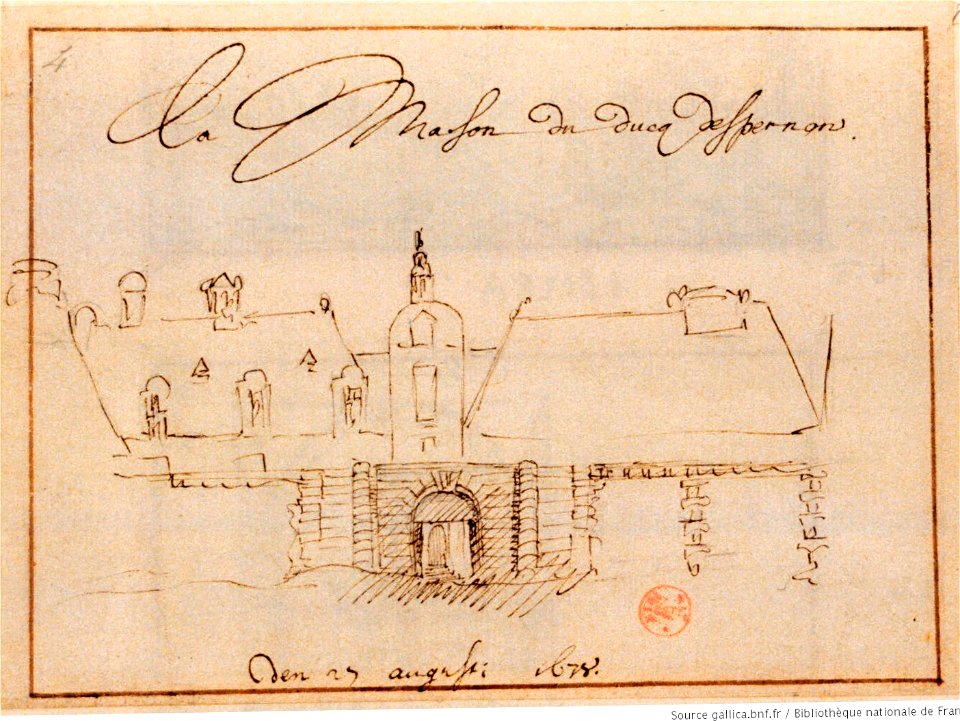 4
La Maison du ducq despernon.
Den 27 augusti 1678.
Source gallica.bnf.fr / Bibliothèque nationale de Fran